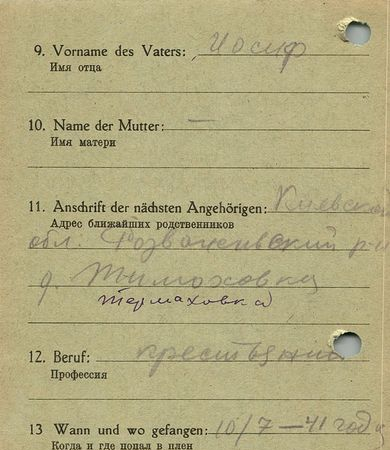 9. Vorname des Vaters: Иосиф
Имя отца
10. Name der Mutter: —
Имя матери
11. Anschrift der nächsten Angehörigen: Киевская
Адрес ближайших родственников
обл. р-н
д. Тимоховка
Термаховка
12. Beruf: крестьянин
Профессия
13 Wann und wo gefangen: 10/7 — 41 года
Когда и где попал в плен